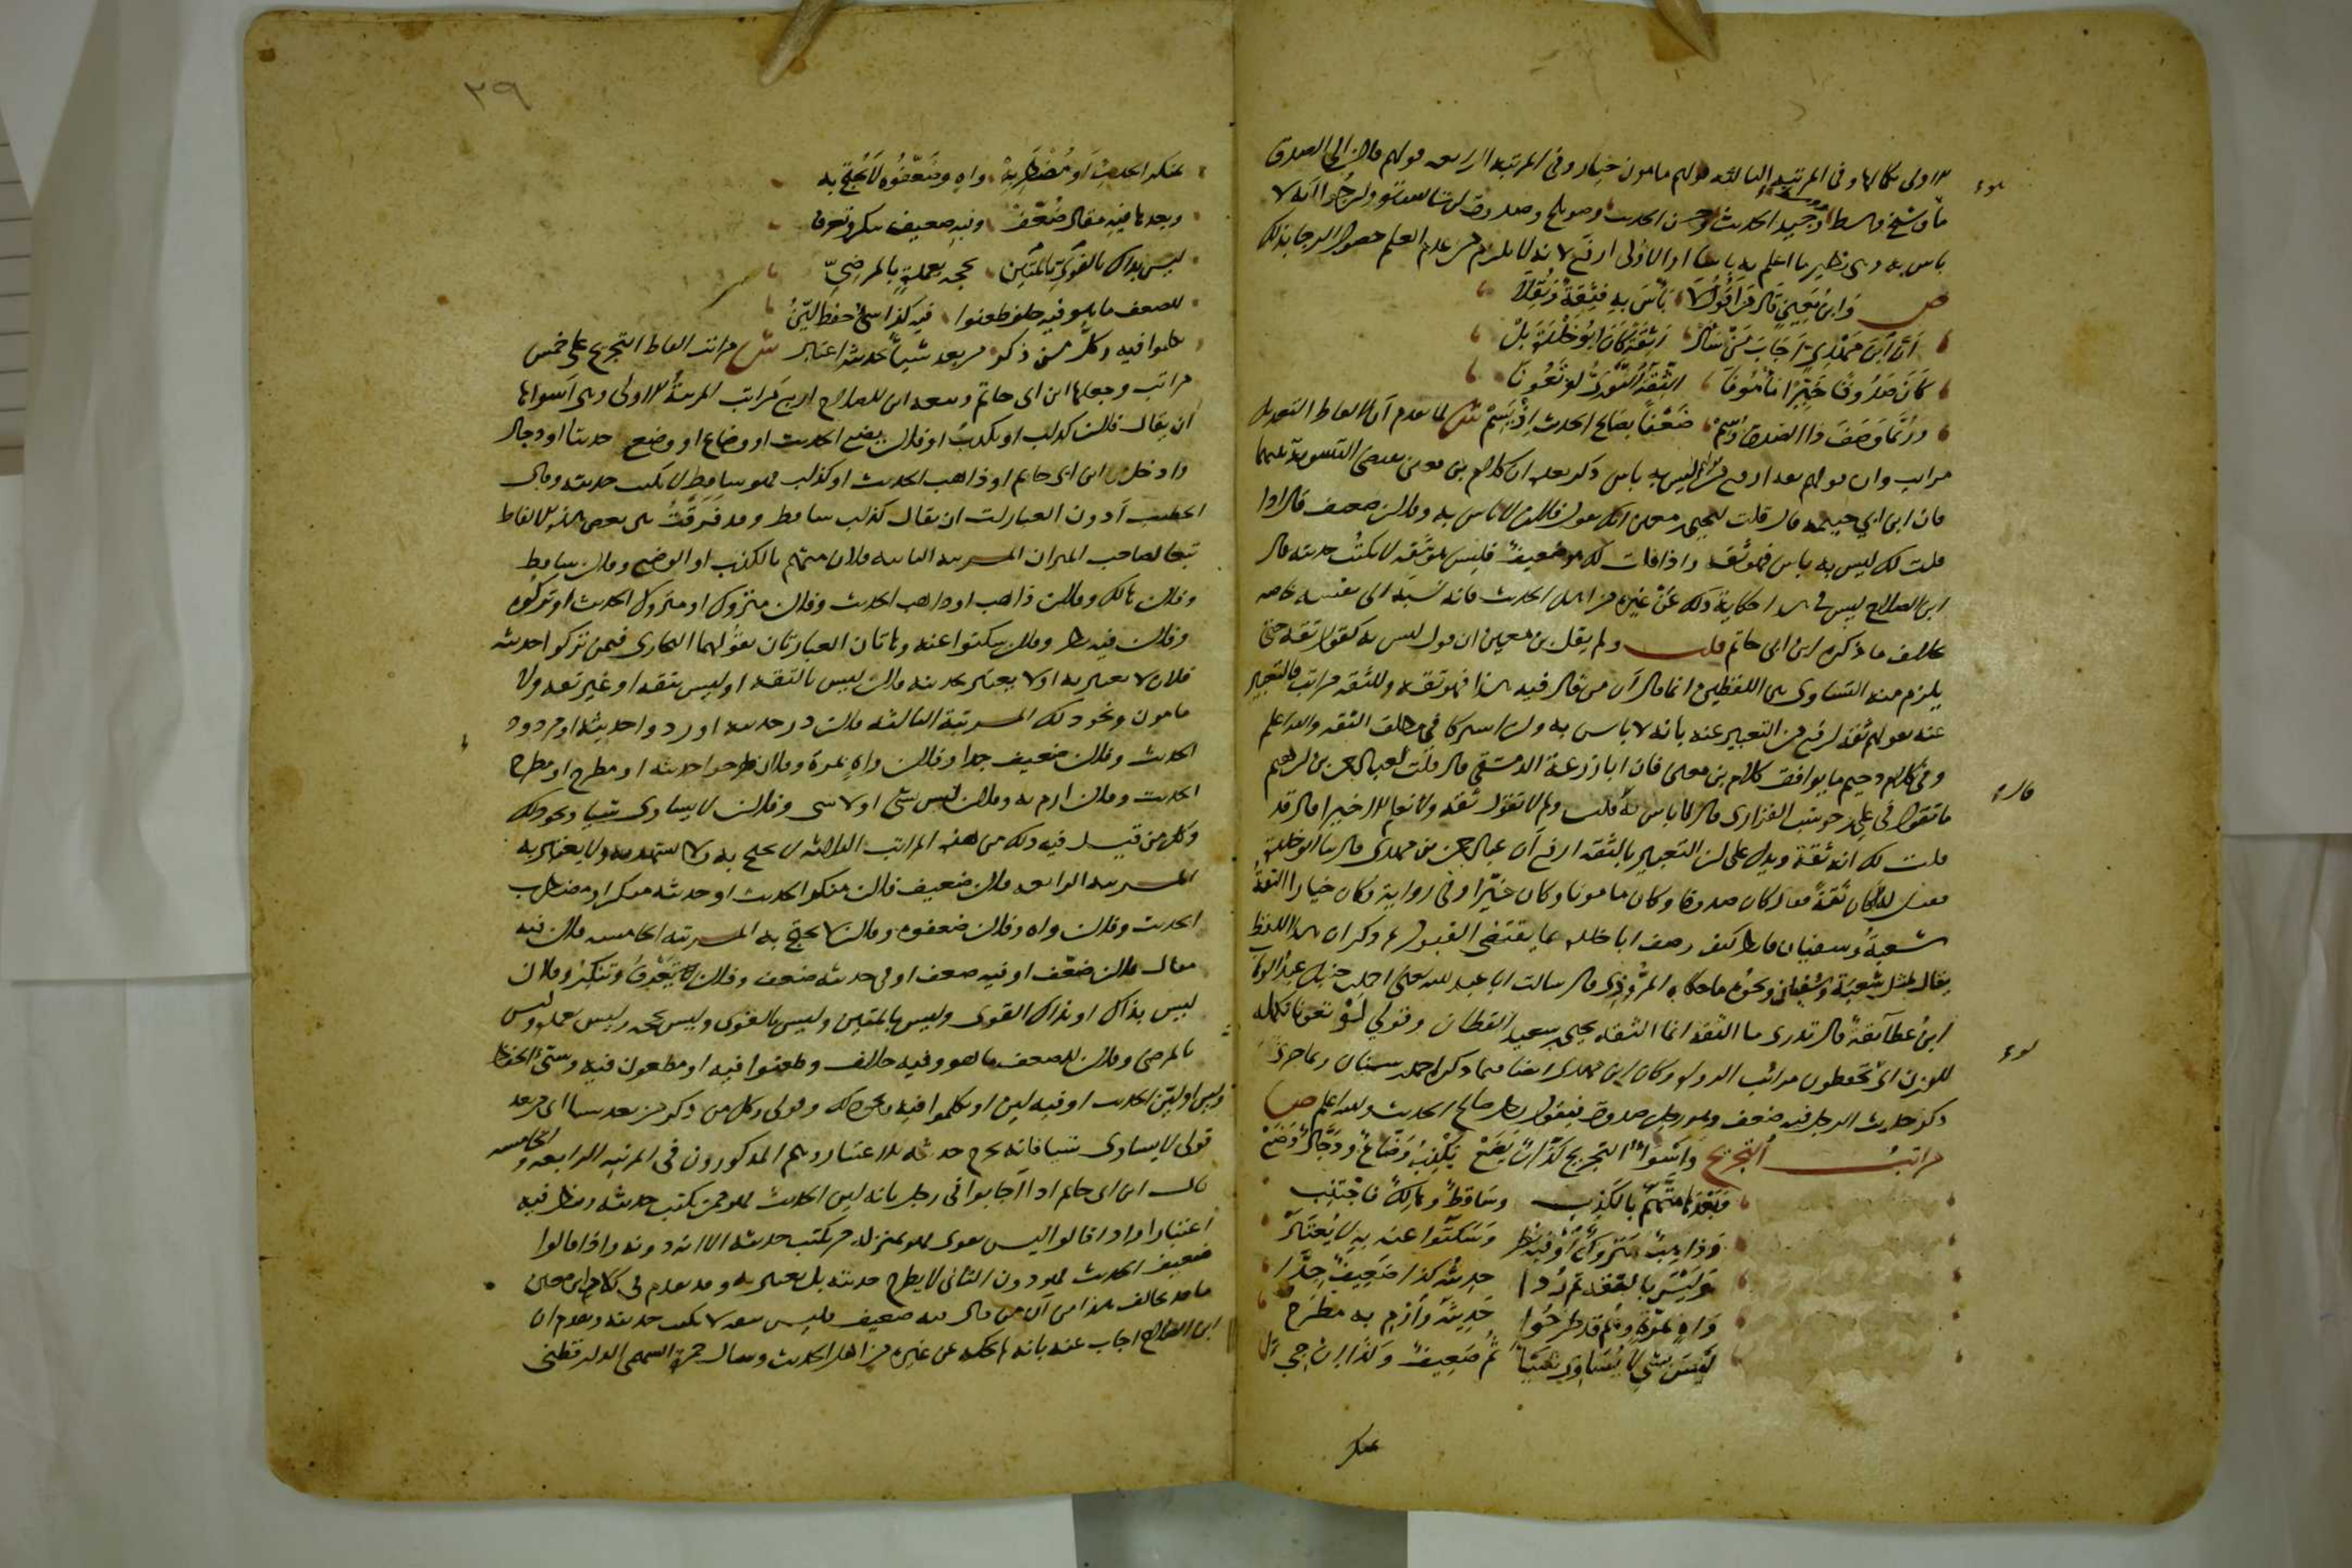 الاولى كالها وفى المرتبه الثالثه قولهم مامون خيار وفى المرتبه الرابعه قولهم فلان الى الصدق
ما هو شيخ وسط وجيد الحديث وحسن الحديث وصويلح وصدوق ان شا الله وارجوا انه لا
باس به وهى نظير ما اعلم به باسا او الاولى ارفع لانه لا يلزم من عدم العلم حصول الرجا بذلك
ص وَابنُ مَعِينٍ قال مَن اَقُولُ لَا بَأسَ بِهِ فَثِقَةٌ وَنُقِلَا
اَنَّ ابنَ مَهْدِيٍّ اَجَابَ مَنْ سَاَلْ اَثِقَةً كَانَ ابُو خَلْدَةَ بَلْ
كَانَ صَدُوقًا خَيِّرًا مَأمُونَا الثِّقَةُ الثَّورِيُّ لَوْ تَعُونَا
وَرُبَّمَا وَصَفَ ذَا الصِّدقِ وُسِمْ ضَعْفًا بصَالِحِ الحديثِ اِذْ يَسِمْ ش لما تقدم ان الفاظ التعديل
مراتب وان قولهم ثقه ارفع من ليس به باس ذكر بعده ان كلام بن معين يقتضى التسوية بينهما
فان ابن ابي خيثمه قال قلت ليحيى بن معين انك تقول فلان لا باس به وفلان ضعيف قال اذا
قلت لك ليس به باس فهو ثقه واذا قلت لك هو ضعيف فليس هو ثقه لا يكتب حديثه قال
ابن الصلاح ليس فى هذا حكاية ذلك عن غيره من اهل الحديث فانه نسبه الى نفسه خاصه
بخلاف ما ذكره ابن ابى حاتم قلت ولم يقل بن معين ان قول ليس به كقول ثقه حتى
يلزم منه التساوى بين اللفظين انما قال ان من قال فيه هذا فهو ثقه وللثقه مراتب فالتعبير
عنه بقولهم ثقه ارفع من التعبير عنه بانه لا باس به وان اشتركا في مطلق الثقه والله اعلم
وفى كلام دحيم ما يوافق كلام بن معين فان ابا زرعة الدمشقى قال قلت لعبد الرحمن بن ابراهيم
ما تقول فى علي بن حوشب الفزارى قال لا باس به قلت ولم لا تقول ثقه ولا نعلم الا خيرا قال قد
قلت لك انه ثقة ويدل على ان التعبير بالثقه ارفع ان عبد الرحمن بن مهدى قال ثنا ابو خلدة
فقيل له اكان ثقة فقال كان صدوقا وكان مامونا وكان خَيِّرا وفى رواية وكان خيارا الثقة
شعبة وسفيان فانظر كيف وصف ابا خلده بما يقتضى القبول ثم ذكر ان هذا اللفظ
يقال لمثل شعبة وسفيان ونحوه ما حكاه المرُّوذى قال سالت ابا عبد الله يعنى احمد بن حنبل عبد الوهاب
ابن عطا ثقة قال تدرى ما الثقه انما الثقه يحيى بن سعيد القطان وقولي لَوْ تعونا تكمله
للوزن اى تحفظون مراتب الرواه وكان ابن مهدى ايضا فيما ذكر احمد بن سنان ربما جرى
ذكر حديث الرجل فيه ضعف وهو رجل صدوق فيقول رجل صالح الحديث والله اعلم ص
مراتب التجريح وَاسْوَأُ التجريح كَذَّابٌ يَضَعْ يَكْذِبُ وَضَّاعٌ ودَجَّالٌ وَضَعْ
فبَعْدَهَا مُتَّهَمٌ بالكَذِبِ وسَاقِطٌ وهالِكٌ فاجْتَنِبِ
وَذاهِبٌ مَتْرُوكٌ اَوْ فِيهِ نظر وسَكَتُوا عنه به لا يُعتبَرْ
وَليْسَ بالثقه ثم رُدَّا حديثُه كذا ضَعِيفٌ جِدَّا
وَاهٍ بمَرَّةٍ وهُم قد طَرَحُوا حَدِيثَه وَارْمِ به مطَّرَحُ
لَيْسَ بشيٍ لا يُسَاوِي شَيْئَا ثُمَّ ضَعِيفٌ وكَذا ان جِيئا
بمنكر
٢٩
بمنكر الحديثِ او مُضْطَرِبِهْ واهٍ وضَعَّفُوه لا يُحْتَجُّ بِه
وبعدها فيه مقال ضُعِّفْ وفيه ضعيف تنكر وتعرف
ليس بذاك بالقوي بالمتين بحجه بعمدةٍ بالمرضيّ
للضعف ما هو فيه خلف طعنوا فيه كذا سئ حفظ ليّنُ
تكلموا فيه وكل من ذكر من بعد شياً بحديثه اعتبر ش مراتب الفاظ التجريح على خمس
مراتب وجعلها ابن ابى حاتم وتبعه ابن الصلاح اربع مراتب المرتبة الاولى وهى اسواها
ان يقال فلان كذاب او يكذب او فلان يضع الحديث او وضاع او وضع حديثا او دجال
وادخل ابن ابى حاتم او ذاهب الحديث او كذاب فهو ساقط لا يكتب حديثه وقال
الخطيب أدون العبارات ان يقال كذاب ساقط وقد فرقت بين بعض هذه الالفاظ
تبعا لصاحب الميزان المرتبه الثانيه فلان متهم بالكذب او الوضع وفلان ساقط
وفلان هالك وفلان ذاهب او ذاهب الحديث وفلان متروك او متروك الحديث او تركوه
وفلان فيه نظر وفلان سكتوا عنه وهاتان العبارتان يقولهما البخارى فيمن تركوا حديثه
فلان لا يعتبر به او لا يعتبر بحديثه فلان ليس بالثقه او ليس بثقه او غير ثقه ولا
مامون ونحو ذلك المرتبة الثالثه فلان رد حديثه او ردوا حديثه او مردود
الحديث وفلان ضعيف جدا وفلان واهٍ بمرة وفلان طرحوا حديثه او مطرح او مطرح
الحديث وفلان ارم به وفلان ليس بشى او لا شى وفلان لا يساوى شيا ونحو ذلك
وكل من قيل فيه ذلك من هذه المراتب الثلاثه لا يحتج به ولا يستشهد به ولا يعتبر به
المرتبه الرابعه فلان ضعيف فلان منكر الحديث او حديثه منكر او مضطرب
الحديث وفلان واه وفلان ضعفوه وفلان لا يحتج به المرتبه الخامسه فلان فيه
مقال فلان ضعّف او فيه ضعف او فى حديثه ضعف وفلان تعرف وتنكر وفلان
ليس بذاك او بذاك القوى وليس بالمتين وليس بالقوى وليس بحجه وليس بعمده وليس
بالمرضى وفلان للضعف ما هو وفيه خلاف وطعنوا فيه او مطعون فيه وسئ الحفظ
ولين او لين الحديث او فيه لين او تكلموا فيه ونحو ذلك وقولى وكل من ذكر من بعد شيا اى من بعد
قولى لا يساوى شيا فانه يخرج حديثه للاعتبار وهم المذكورون فى المرتبه الرابعه والخامسه
قال ابن ابى حاتم اذا اجابوا فى رجل بانه لين الحديث فهو ممن يكتب حديثه وينظر فيه
اعتبارا واذا قالوا ليس بقوى فهو بمنزله من يكتب حديثه الا انه دونه واذا قالوا
ضعيف الحديث فهو دون الثانى لا يطرح حديثه بل يعتبر به وقد تقدم فى كلام ابن معين
ما قد يخالف هذا من ان من قال فيه ضعيف فليس بثقه لا يكتب حديثه وتقدم ان
ابن الصلاح اجاب عنه بانه لم يحكه عن غيره من اهل الحديث وسال حمزة السهمى الدارقطنى